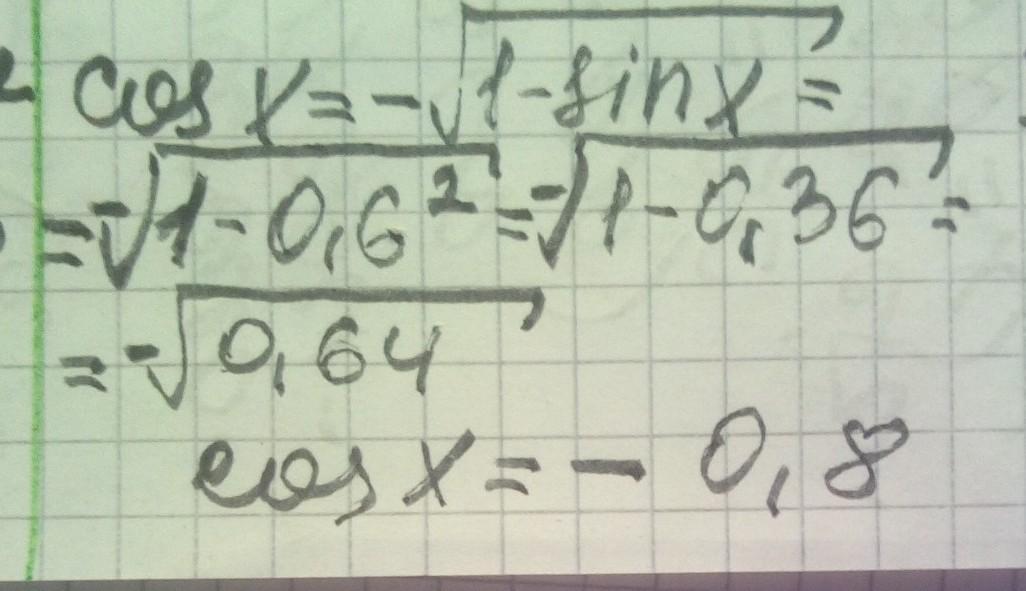 cos x = -√1-sin x =
= -√1-0,6² = -√1-0,36 =
= -√0,64
cos x = - 0,8